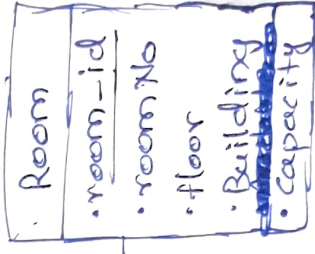 Room
• room_id
• room No
• floor
• Building
• capacity